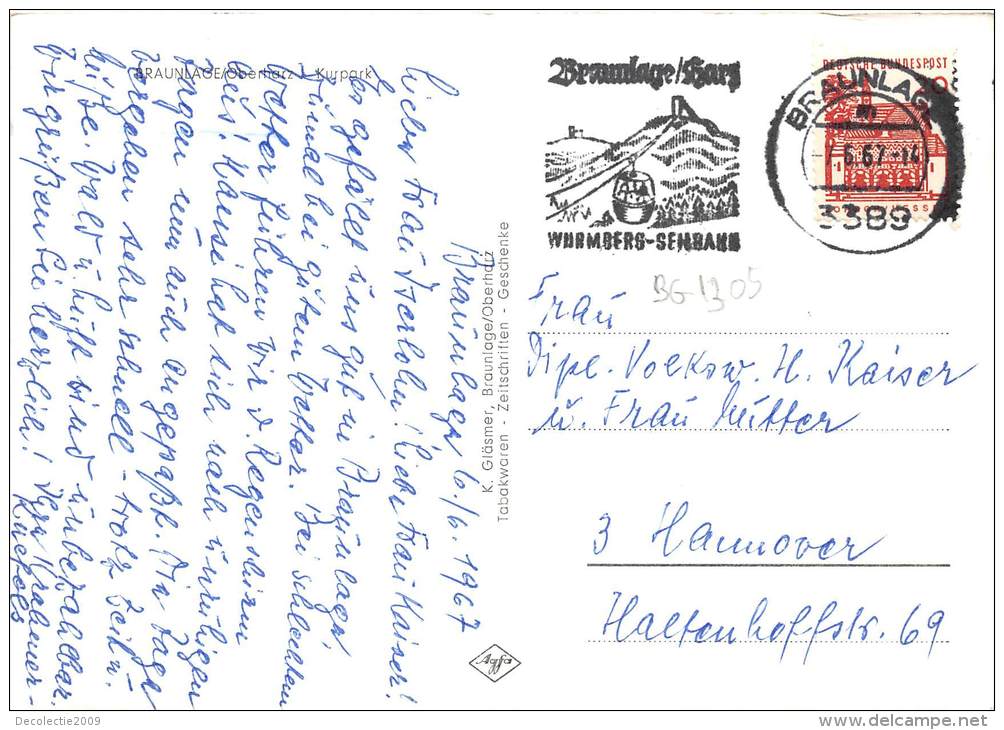 BRAUNLAGE/Oberharz - Kurpark
Braunlage, 6./6. 1967
Liebe Frau Iserloh! Liebe Frau Kaiser!
Es gefällt uns gut in Braunlage,
zumal bei gutem Wetter. Bei schlechtem
Wetter führen wir d. Regenschirm
aus! Hannse hat sich nach unruhigen
Tagen nun auch angepaßt. Die Tage
vergehen sehr schnell - trotz Zeit u.
Muße. Wald u. Luft sind unbezahlbar.
Wir grüßen Sie herzlich! Ihre
K. Gläsmer, Braunlage/Oberharz
Tabakwaren - Zeitschriften - Geschenke
Agfa
Braunlage/Harz
WURMBERG-SEILBAHN
DEUTSCHE BUNDESPOST
BRAUNLAGE
6.67.-14
3389
BG 1305
Frau
Dipl. Volksw. H. Kaiser
u. Frau Mutter
3 Hannover
Haltenhoffstr. 69
Decolectie2009
delcampe.net